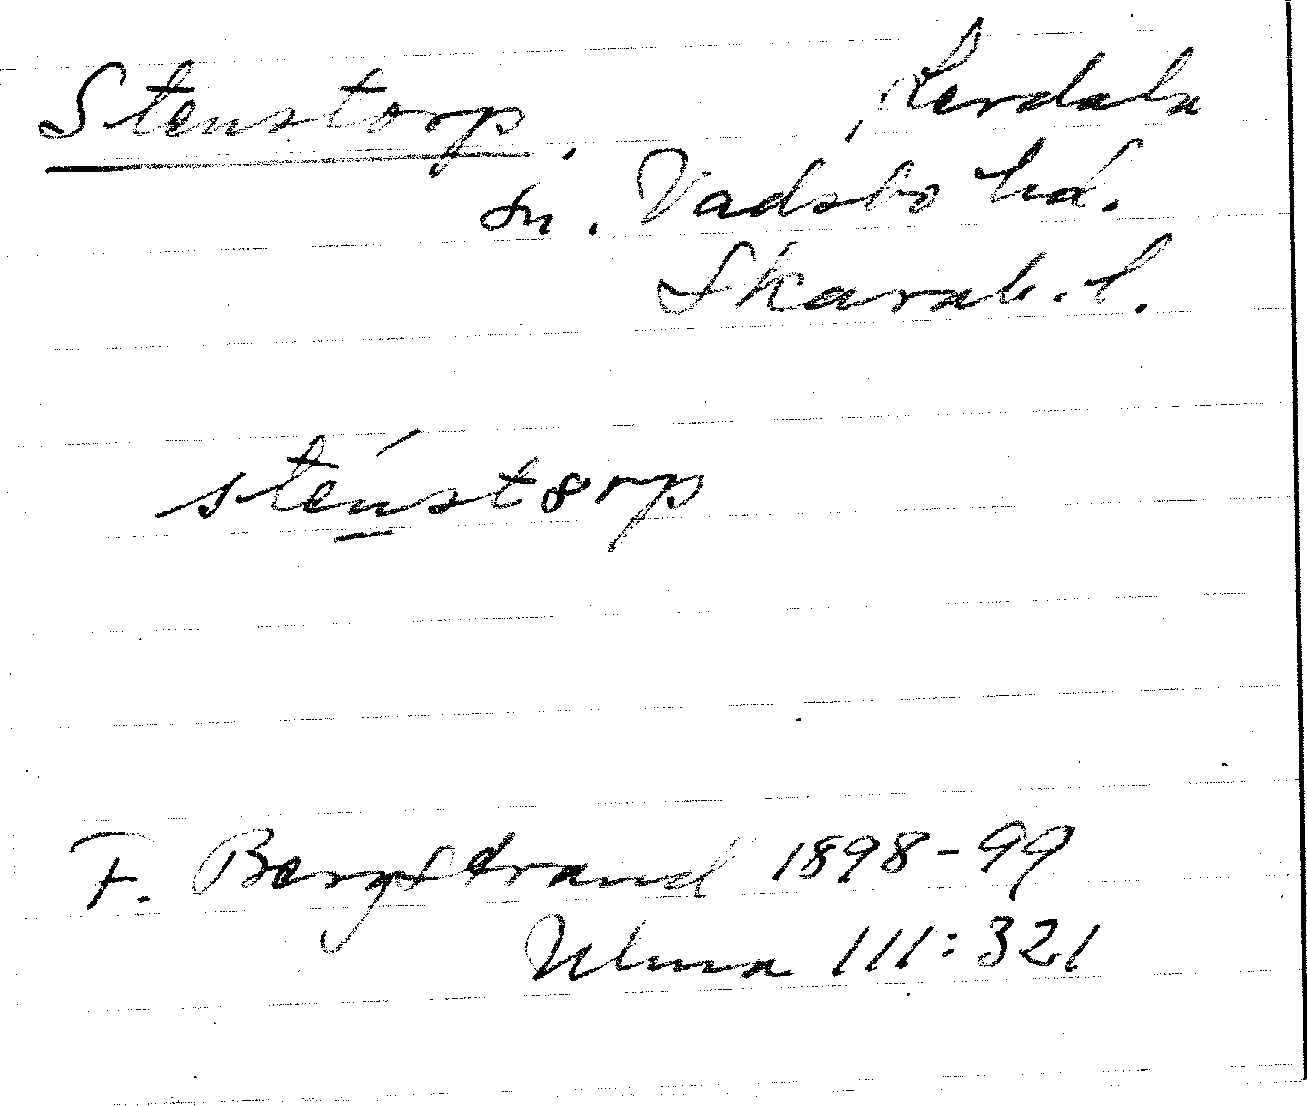 Stenstorp, Lerdala
sn. Vadsbo hd.
Skarab. l.
sténst8rp
F. Bergstrand 1898-99
Ulma 111:321